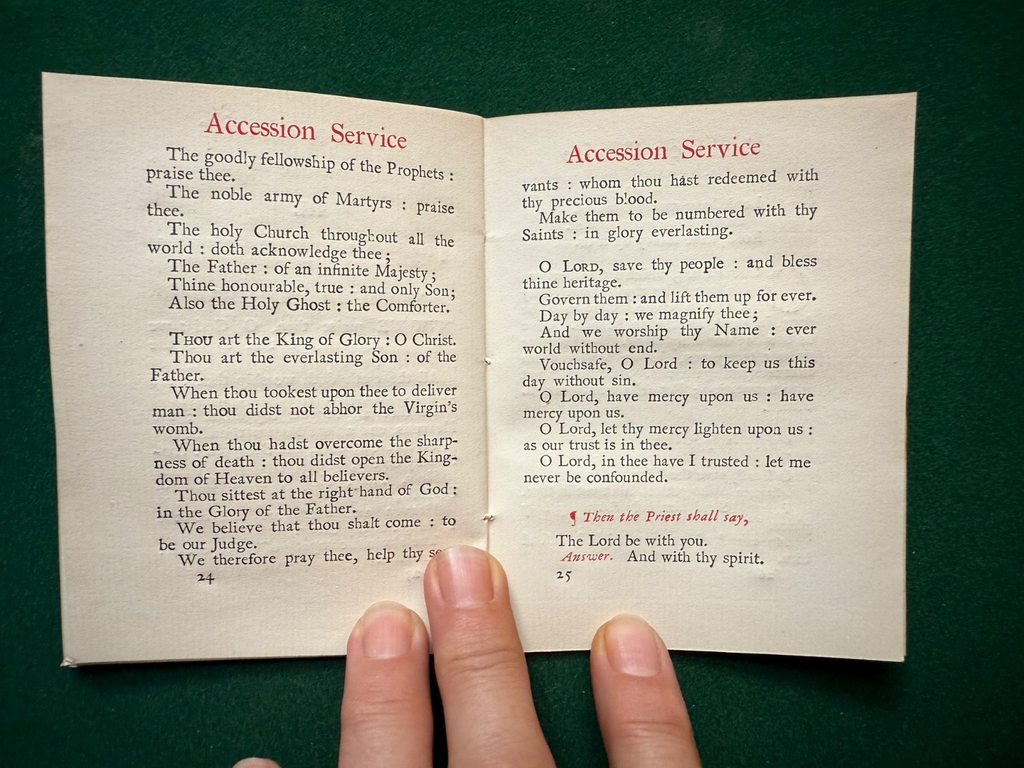 Accession Service
The goodly fellowship of the Prophets :
praise thee.
The noble army of Martyrs : praise
thee.
The holy Church throughout all the
world : doth acknowledge thee ;
The Father : of an infinite Majesty ;
Thine honourable, true : and only Son;
Also the Holy Ghost : the Comforter.
THOU art the King of Glory : O Christ.
Thou art the everlasting Son : of the
Father.
When thou tookest upon thee to deliver
man : thou didst not abhor the Virgin's
womb.
When thou hadst overcome the sharp-
ness of death : thou didst open the King-
dom of Heaven to all believers.
Thou sittest at the right hand of God :
in the Glory of the Father.
We believe that thou shalt come : to
be our Judge.
We therefore pray thee, help thy
24
Accession Service
vants : whom thou hast redeemed with
thy precious blood.
Make them to be numbered with thy
Saints : in glory everlasting.
O LORD, save thy people : and bless
thine heritage.
Govern them : and lift them up for ever.
Day by day : we magnify thee ;
And we worship thy Name : ever
world without end.
Vouchsafe, O Lord : to keep us this
day without sin.
O Lord, have mercy upon us : have
mercy upon us.
O Lord, let thy mercy lighten upon us :
as our trust is in thee.
O Lord, in thee have I trusted : let me
never be confounded.
¶ Then the Priest shall say,
The Lord be with you.
Answer. And with thy spirit.
25